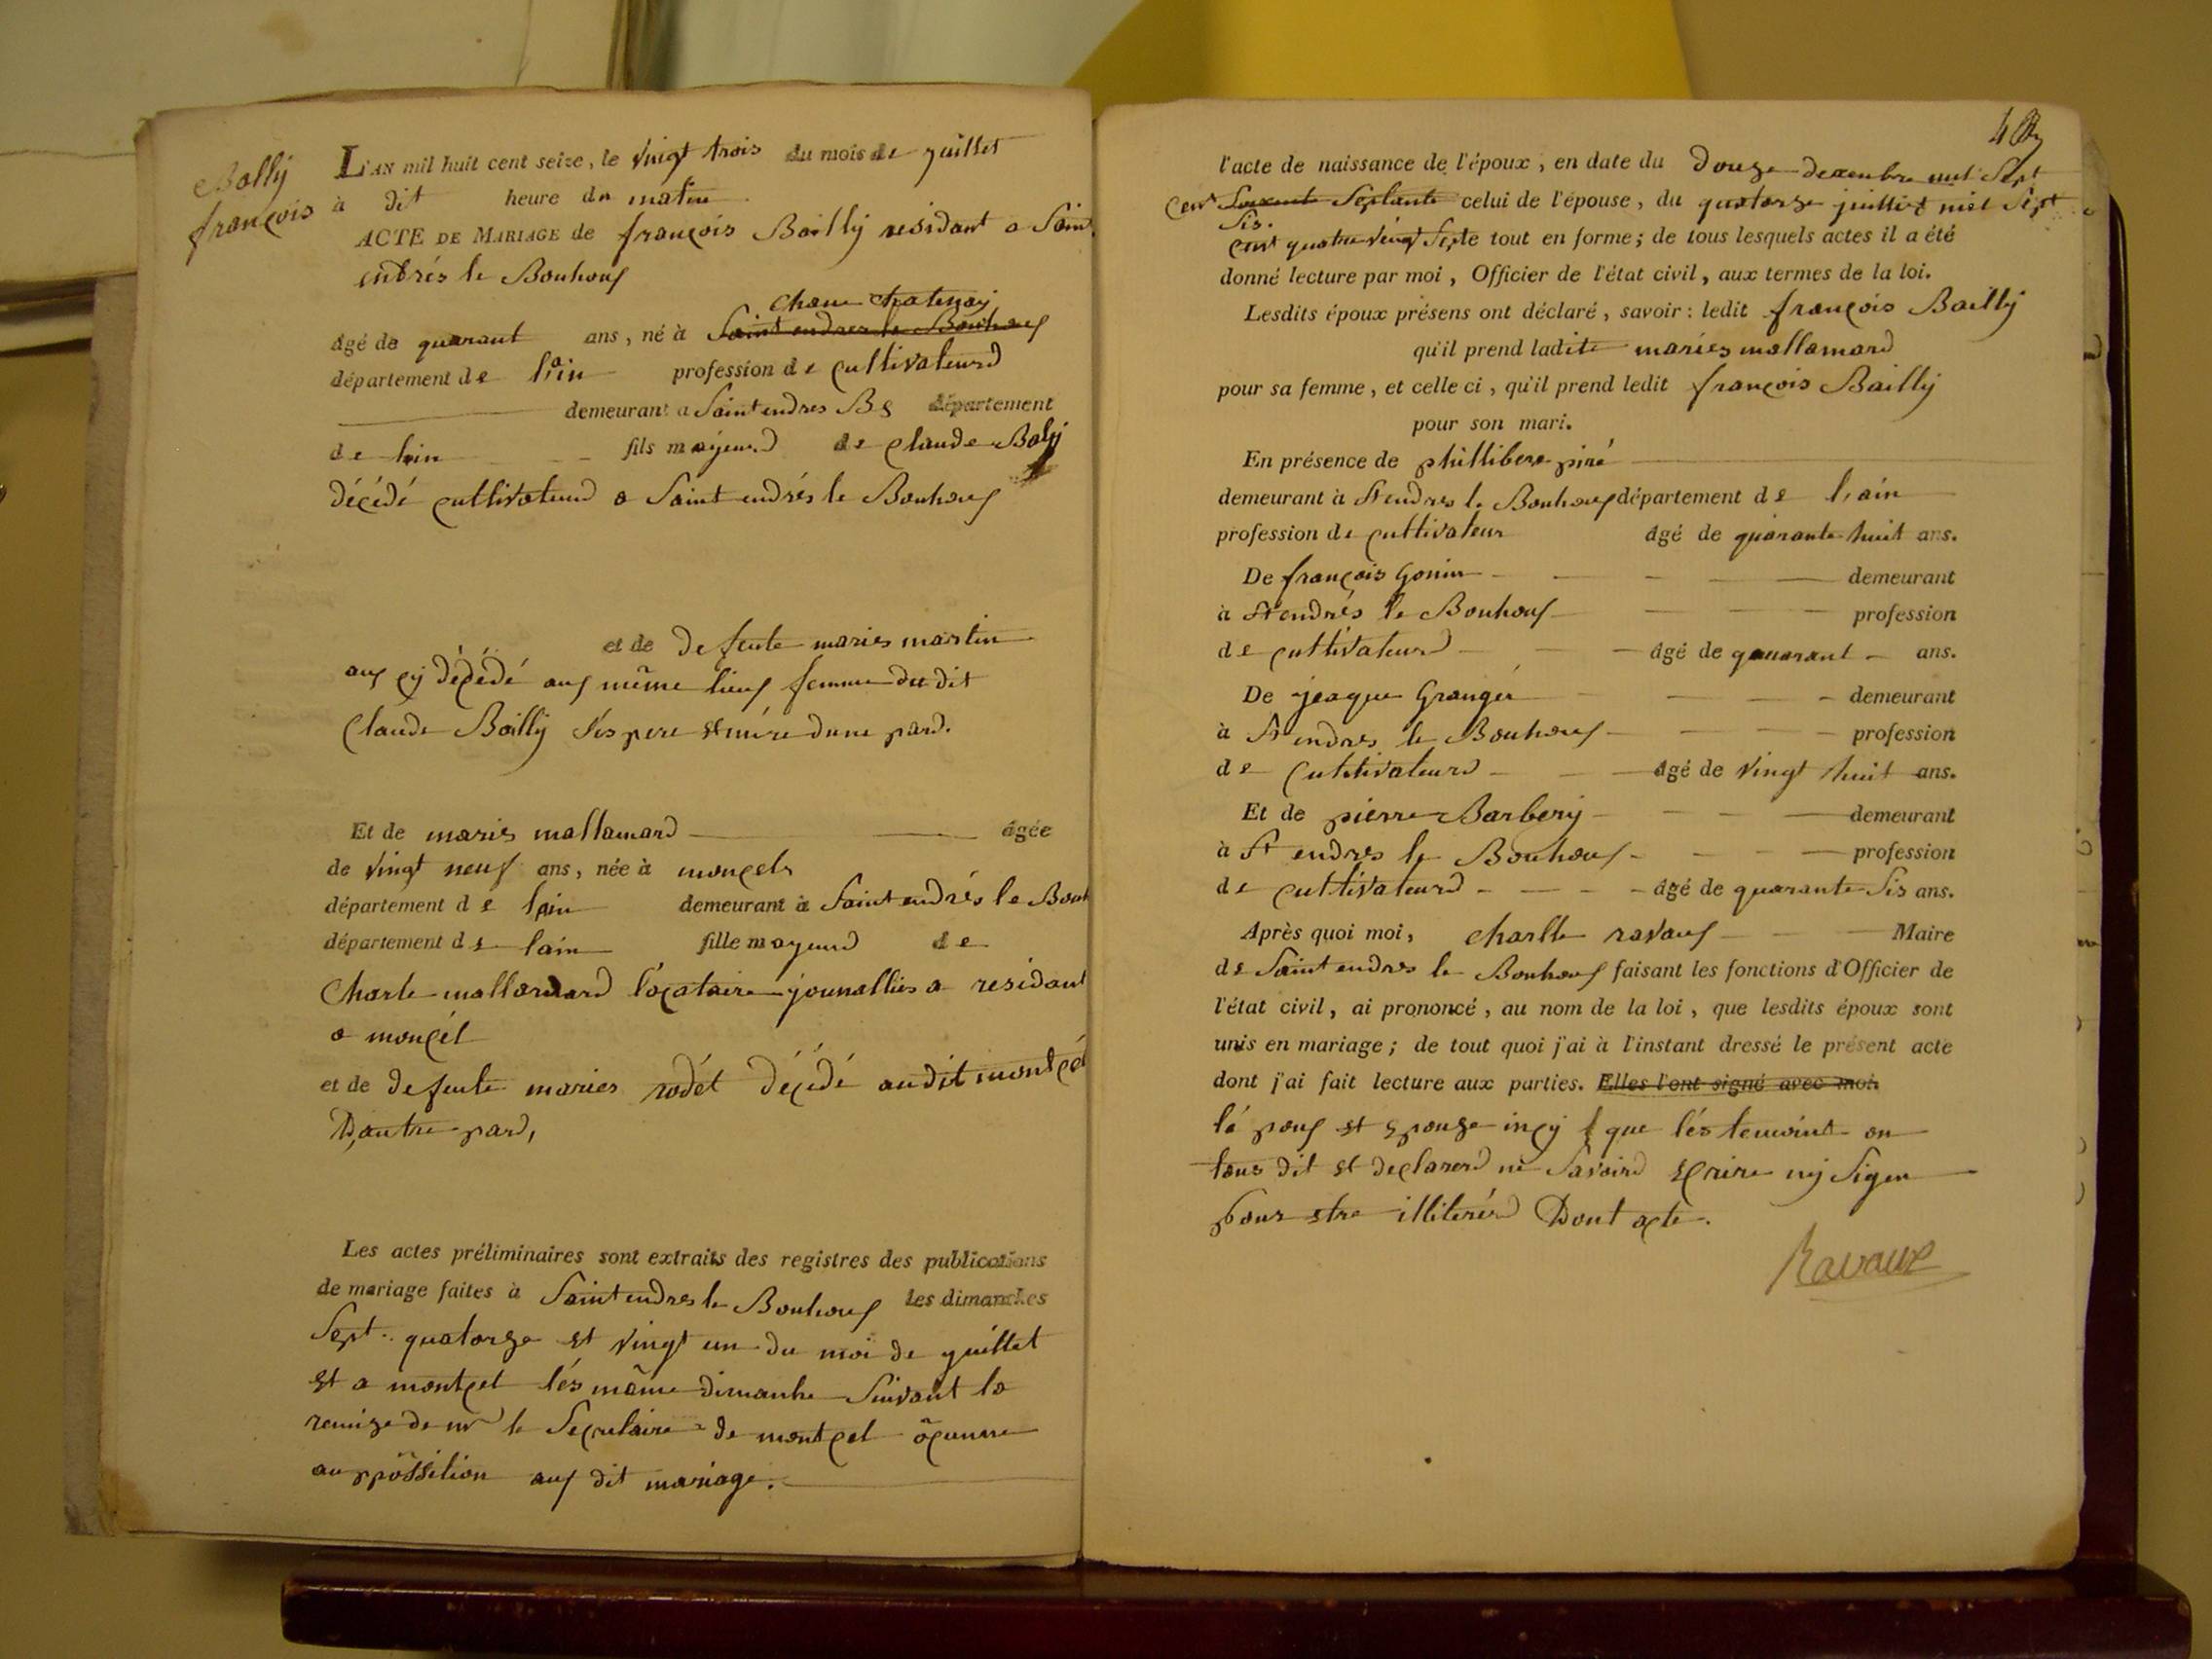 Bally
françois
L'AN mil huit cent seize, le vingt trois du mois de juillet
à dit heure du matin
ACTE DE MARIAGE de françois Bailly residant a Saint
endrés le Bouhouf
chane chatenay
âgé de quarant ans, né à Saint endres le Bouhouf
département de l'ain profession de cultivateurd
demeurant a Saint endres B département
de lain fils majeurd de claude Baly
décédé cultivateurd a Saint endrés le Bouhouf
et de defente maries martin
auf cy décédé auf même lieuf femme du dit
Claude Bailly sés pere et mére dune pard.
Et de maries mallamard âgée
de vingt neuf ans, née à moncels
département de lain demeurant à Saint endrés le Bouh
département de lain fille mayeurd de
Charle mallamard locataire journallies a residant
a moncél
et de defente maries rodét décédé audit montcél
D'autre pard,
Les actes préliminaires sont extraits des registres des publications
de mariage faites à Saint endres le Bouhouf les dimanches
Sept quatorze et vingt un du moi de juillet
et a montcel lés même dimanhe Suivant la
remize de mr le Secretaire de montcel ocunne
auppossition auf dit mariage.
l'acte de naissance de l'époux, en date du Douze decembre mil Sept
Cent Soixente Septante celui de l'épouse, du quatorze juillet miel Sept
Sis.
Cent quatre vingt Septe tout en forme; de tous lesquels actes il a été
donné lecture par moi, Officier de l'état civil, aux termes de la loi.
Lesdits époux présens ont déclaré, savoir: ledit françois Bailly
qu'il prend ladite maries mallamard
pour sa femme, et celle ci, qu'il prend ledit françois Bailly
pour son mari.
En présence de phillibere piré
demeurant à St endres le Bouhouf département de l'ain
profession de cultivateur âgé de quarante huit ans.
De françois Gonin demeurant
à St endrés le Bouhouf profession
de cultivateurd âgé de quarant ans.
De jeaque Grangér demeurant
à St endres le Bouhouf profession
de cultivateurd âgé de vingt huit ans.
Et de pierre Barbery demeurant
à St endres le Bouhouf profession
de cultivateurd âgé de quarante Sis ans.
Après quoi moi, charlle ravauf Maire
de Saint endres le Bouhouf faisant les fonctions d'Officier de
l'état civil, ai prononcé, au nom de la loi, que lesdits époux sont
unis en mariage; de tout quoi j'ai à l'instant dressé le présent acte
dont j'ai fait lecture aux parties. Elles l'ont signé avec moi.
lé pouf et epouze incy que lés temoint on
tous dit et declarerd ne Savoird ecrire ny Siger
pour etre illiterérd Dont acte.
Ravaux